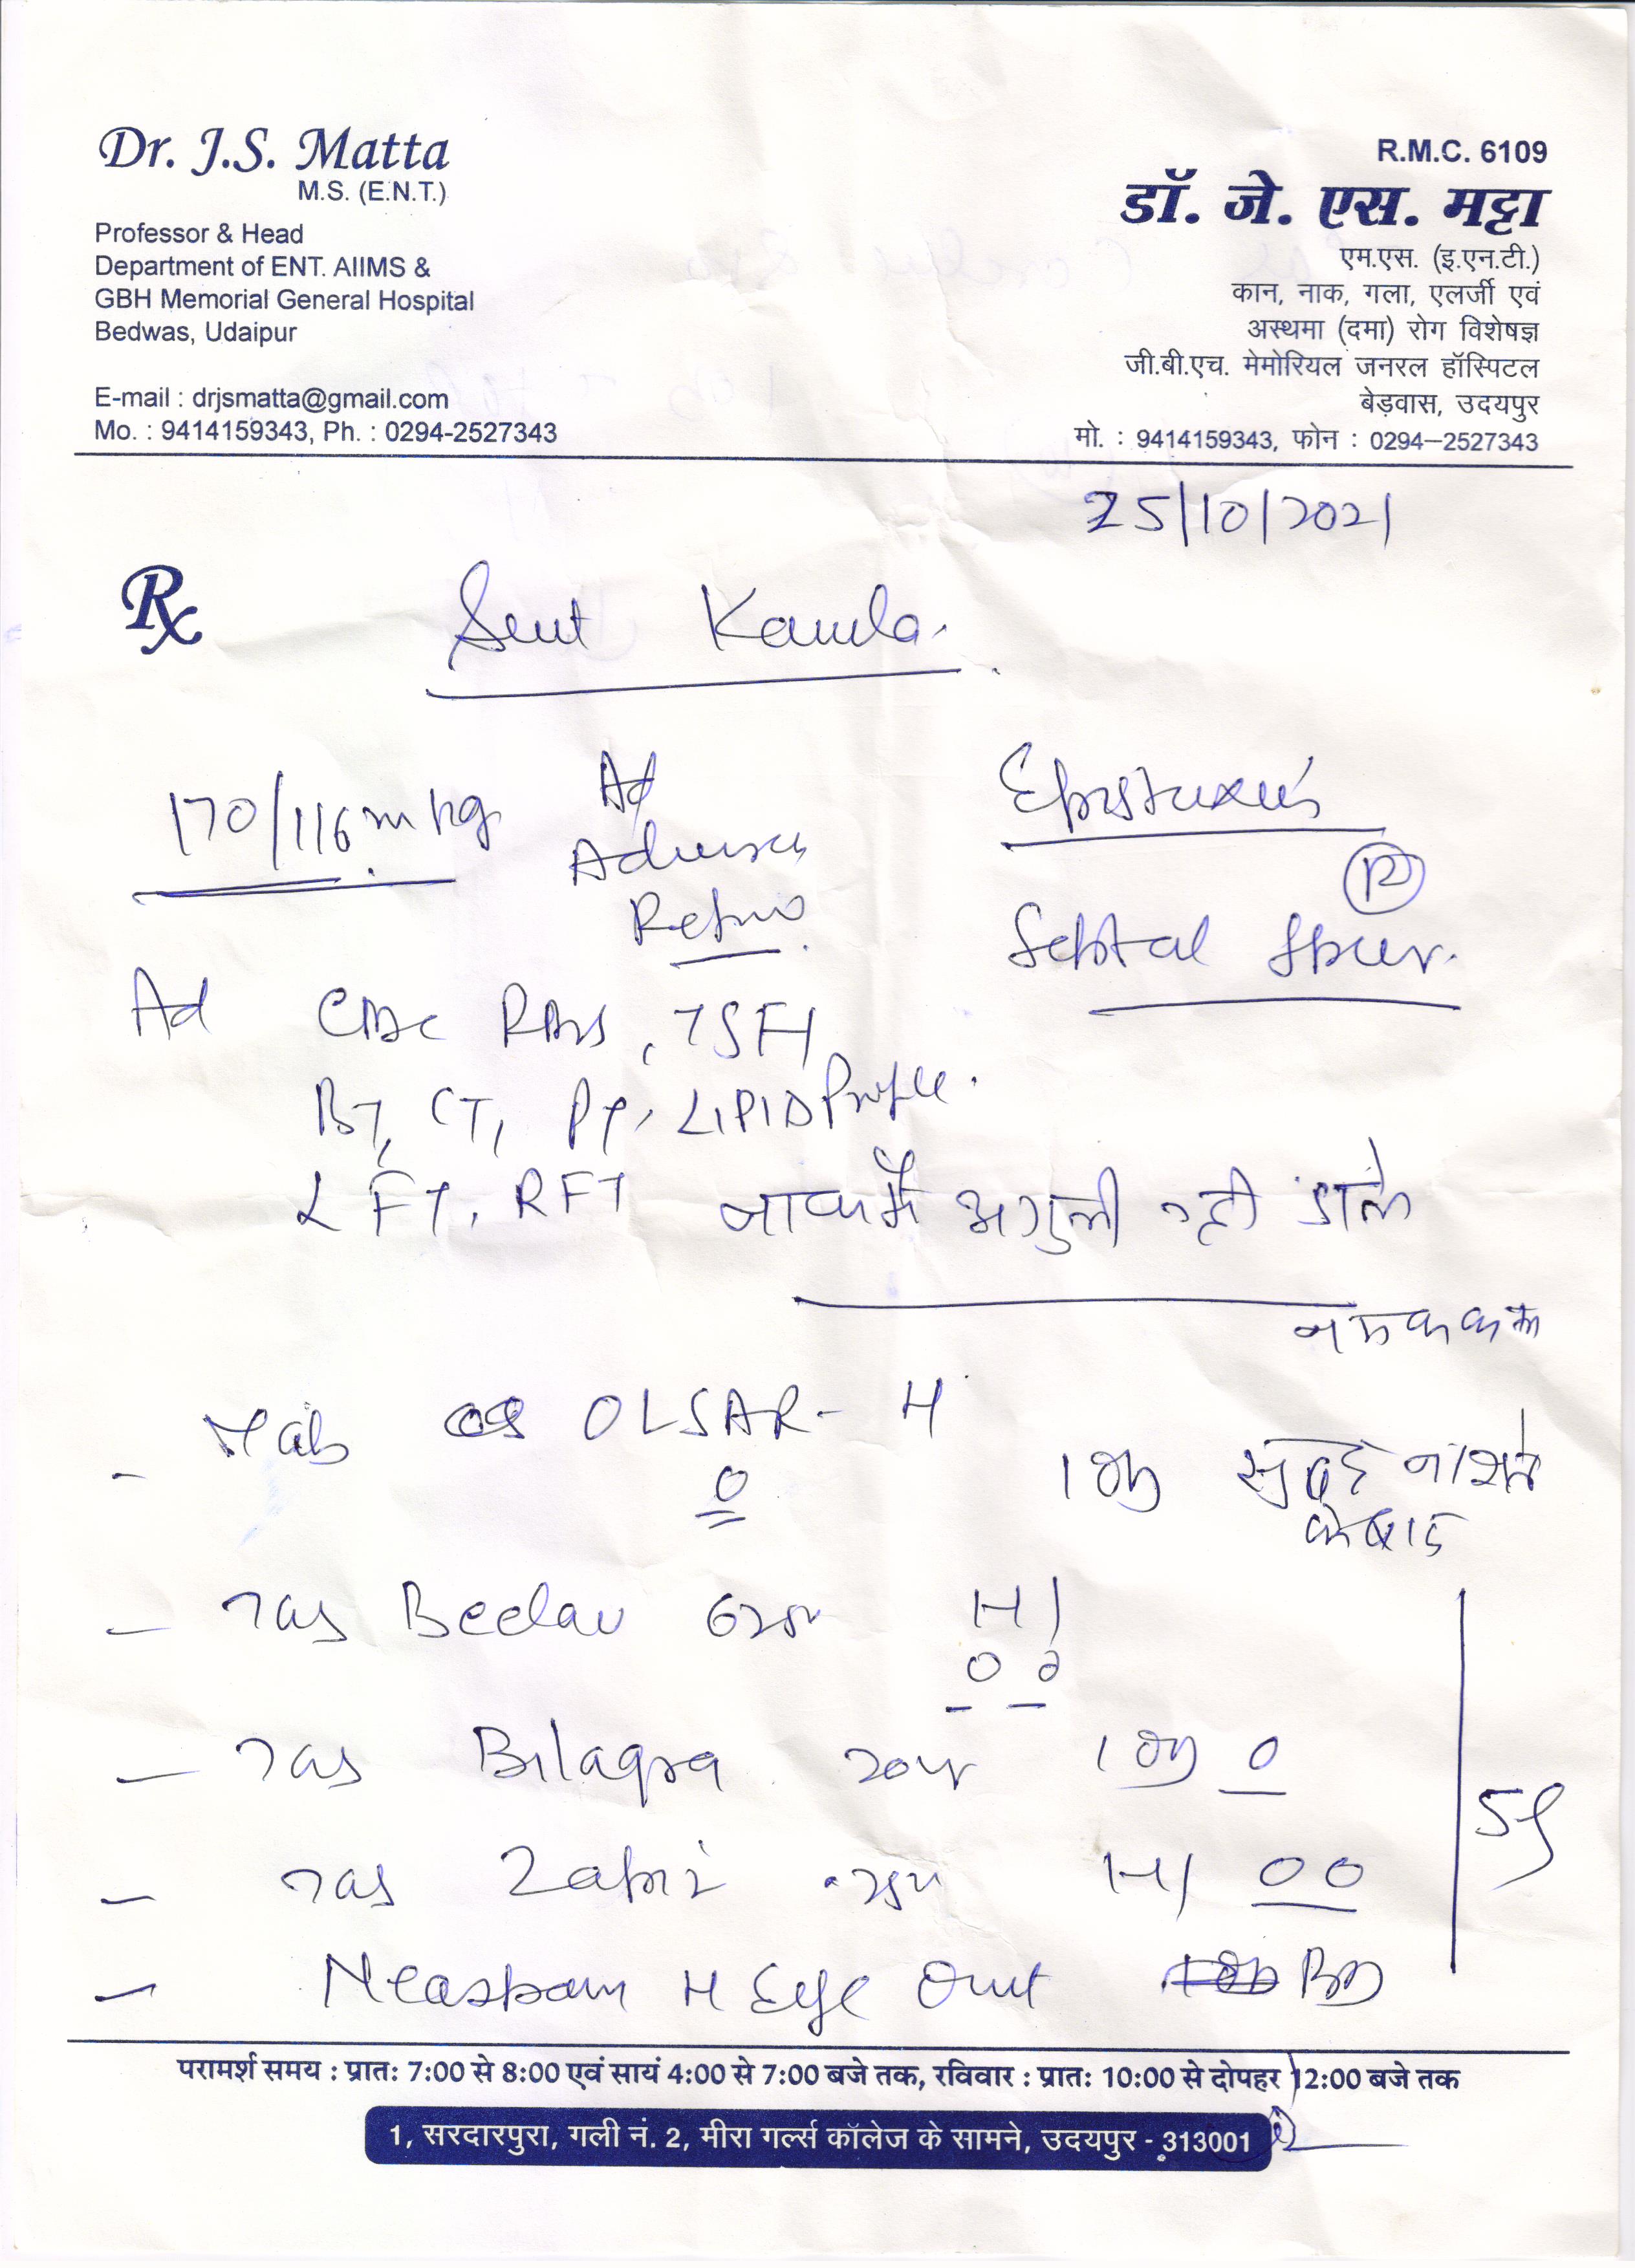 Dr. J.S. Matta
M.S. (E.N.T.)
Professor & Head
Department of ENT. AIIMS &
GBH Memorial General Hospital
Bedwas, Udaipur
E-mail : drjsmatta@gmail.com
Mo. : 9414159343, Ph. : 0294-2527343
R.M.C. 6109
डॉ. जे. एस. मट्टा
एम.एस. (इ.एन.टी.)
कान, नाक, गला, एलर्जी एवं
अस्थमा (दमा) रोग विशेषज्ञ
जी.बी.एच. मेमोरियल जनरल हॉस्पिटल
बेड़वास, उदयपुर
मो. : 9414159343, फोन : 0294–2527343
25/10/2021
Rx
Smt Kamla.
170/116 mmhg
Ad
Epistaxis
R
Septal Spur.
Ad CBC RBS, TSH
BT, CT, PT, LIPID Profile.
LFT, RFT
नाक मैं अगुली नही डाले
नमक कम
Tab OLSAR- H
सुबह नाश्ते
के बाद
Tab Beclav 625
Tab Bilaqra 20
Tab
Neosporin H Eye Oint BD
परामर्श समय : प्रातः 7:00 से 8:00 एवं सायं 4:00 से 7:00 बजे तक, रविवार : प्रातः 10:00 से दोपहर 12:00 बजे तक
1, सरदारपुरा, गली नं. 2, मीरा गर्ल्स कॉलेज के सामने, उदयपुर - 313001